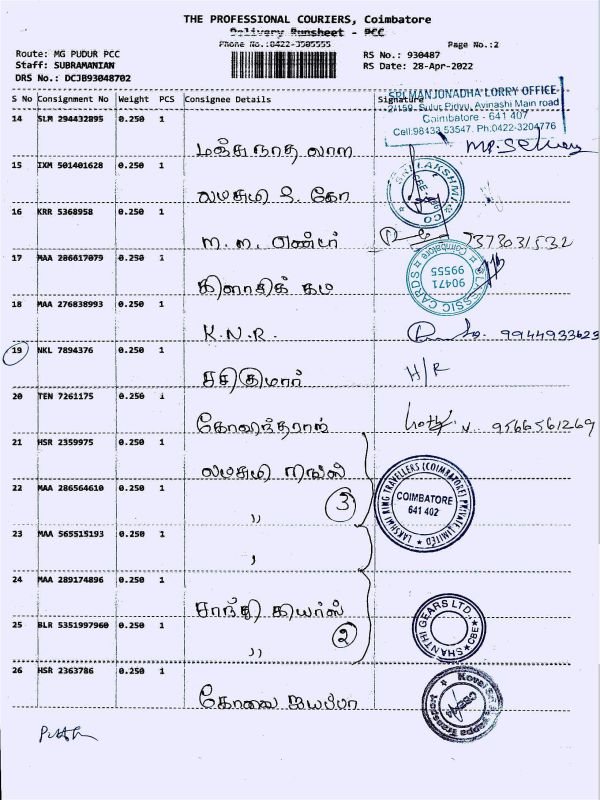 THE PROFESSIONAL COURIERS, Coimbatore
Delivery Runsheet - PCC
Phone No.:0422-3505555
Page No.:2
Route: MG PUDUR PCC
RS No.: 930487
Staff: SUBRAMANIAN
RS Date: 28-Apr-2022
DRS No.: DCJB93048702
S No Consignment No Weight PCS Consignee Details Signature
SRI MANJUNADHA LORRY OFFICE
Avinashi Main road
Coimbatore - 641 407
Cell:98433 53547, Ph:0422-3204776
14 SLM 294432895 0.250 1
மஞ்சுநாத லாரி
15 IXM 501401628 0.250 1
லட்சுமி & கோ
SRI LAKSHMI & CO
CBE
16 KRR 5368958 0.250 1
7373031532
17 MAA 286617079 0.250 1
கிளாசிக்
CLASSIC CARDS Coimbatore
90471
99555
18 MAA 276838993 0.250 1
K.N.R.
9944933623
19 NKL 7894376 0.250 1
சசிகுமார்
H/R
20 TEN 7261175 0.250 1
கோவிந்தராஜ்
9566561269
21 HSR 2359975 0.250 1
லட்சுமி
22 MAA 286564610 0.250 1
,, 3
LAKSHMI RING TRAVELLERS (COIMBATORE) PRIVATE LIMITED
COIMBATORE
641 402
23 MAA 565515193 0.250 1
,
24 MAA 289174896 0.250 1
சாந்தி கியர்ஸ்
25 BLR 5351997960 0.250 1
,, 2
SHANTHI GEARS LTD., CBE
26 HSR 2363786 0.250 1
கோவை ஐயப்பா
Kovai Sri Ayyappa Transport